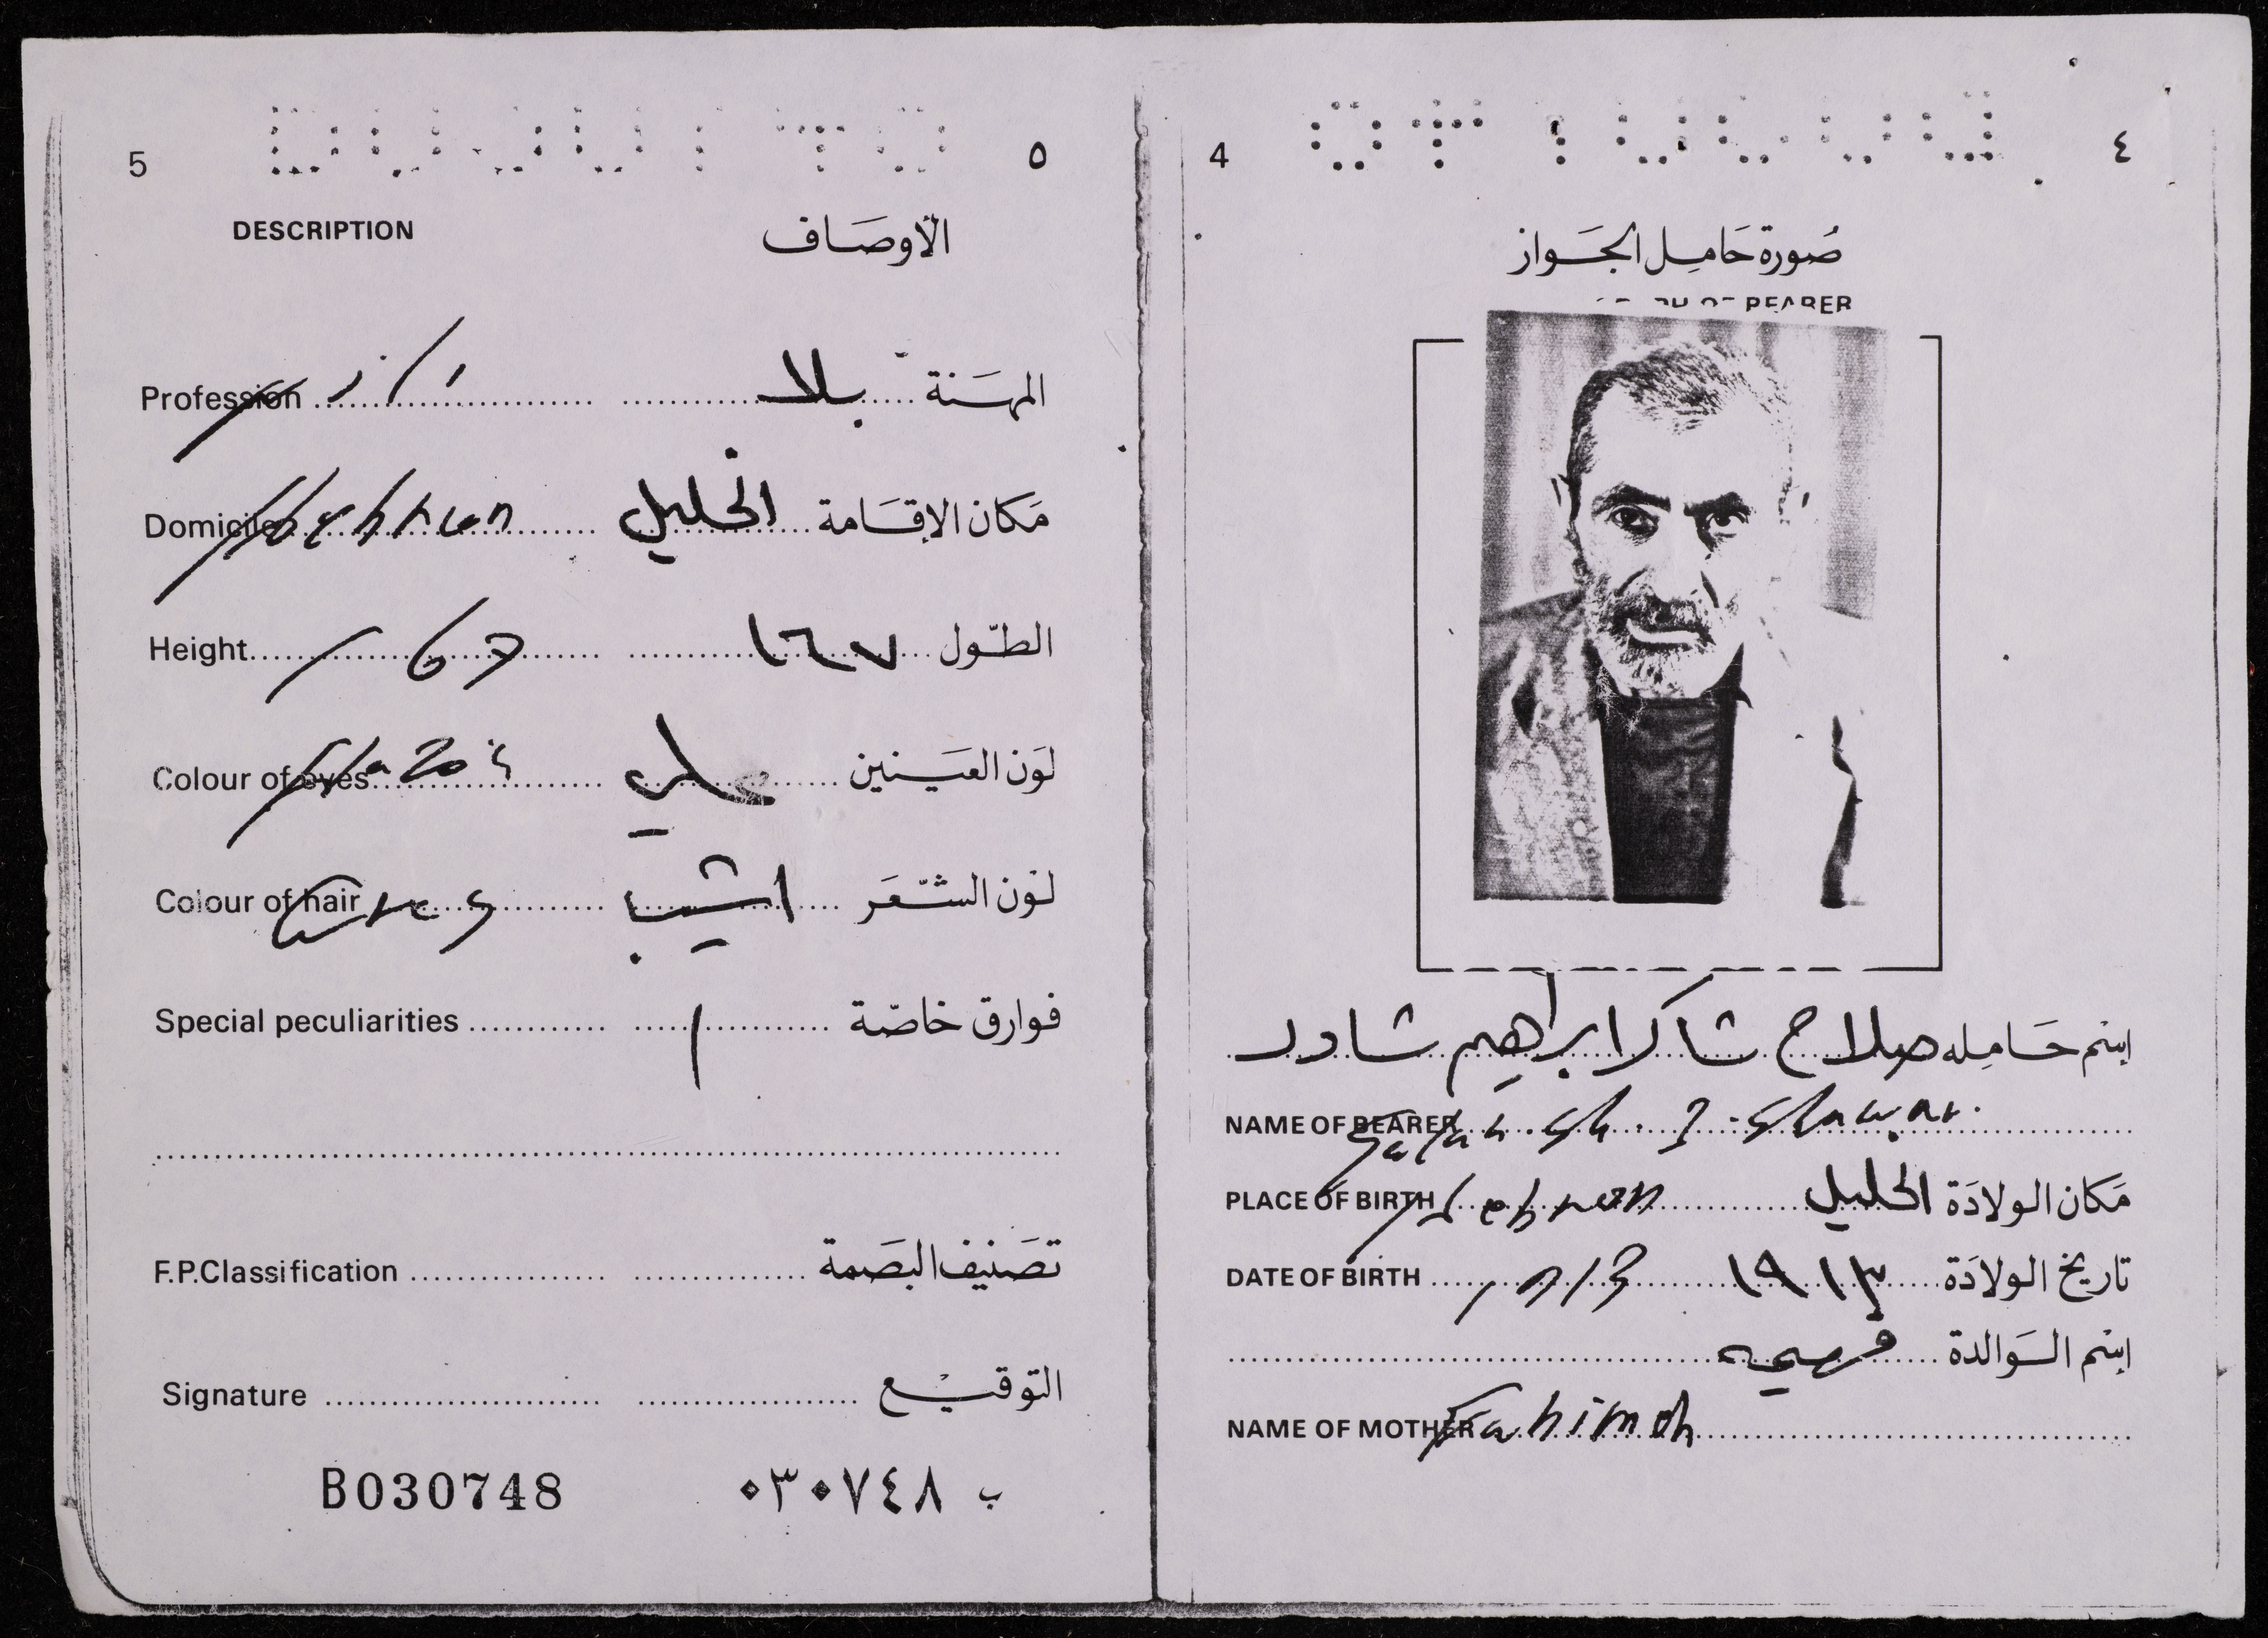 5 ٥
DESCRIPTION الأوصَاف
Profession المهَنة بلا
Domicile Hebron مَكان الإقَامة الخليل
Height 167 الطّول ١٦٧
Colour of eyes لَون العَينين
Colour of hair Grey لَون الشّعَر اشيب
Special peculiarities فوارق خاصّة
F.P.Classification تصَنيف البصَمة
Signature التوقيع
B030748 ب ٠٣٠٧٤٨
4 ٤
صُورة حَامِل الجَواز
BEARER
اِسْم حَامِله صلاح شاكر ابراهيم شاور
NAME OF BEARER Salah. Sh. I. Shawar.
PLACE OF BIRTH Hebron مَكان الولادَة الخليل
DATE OF BIRTH 1913 تاريخ الولادَة ١٩١٣
اِسْم الوَالدة فهيمه
NAME OF MOTHER Fahimeh